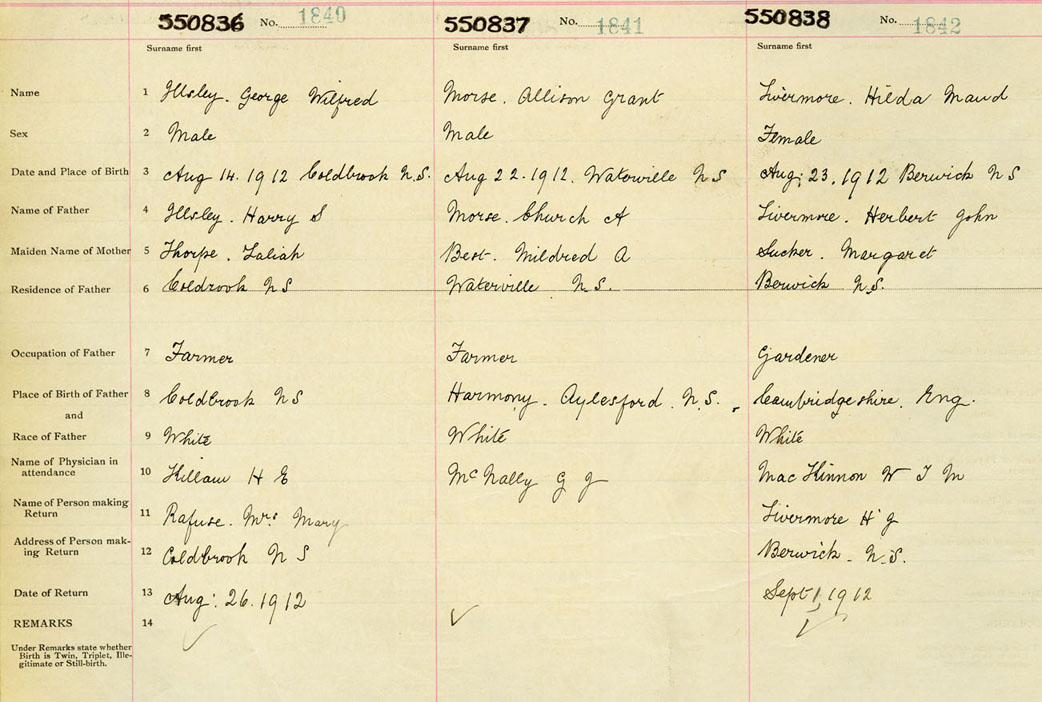 550836 No. 1840 550837 No. 1841 550838 No. 1842
Surname first Surname first Surname first
Name 1 Illsley. George Wilfred Morse. Allison Grant Livermore. Hilda Maud
Sex 2 Male Male Female
Date and Place of Birth 3 Aug 14. 1912 Coldbrook N.S. Aug 22. 1912. Waterville N S Aug: 23. 1912 Berwick N S
Name of Father 4 Illsley. Harry S Morse. Church A Livermore. Herbert John
Maiden Name of Mother 5 Thorpe. Laliah Best. Mildred A Sucker. Margaret
Residence of Father 6 Coldrook N S Waterville N.S. Berwick N.S.
Occupation of Father 7 Farmer Farmer Gardener
Place of Birth of Father 8 Coldbrook N S Harmony. Aylesford. N.S. Cambridgeshire. Eng.
and
Race of Father 9 White White White
Name of Physician in
attendance 10 Killam H E McNally G J MacKinnon W T M
Name of Person making
Return 11 Rafuse. Mrs Mary Livermore H J
Address of Person mak-
ing Return 12 Coldbrook N S Berwick. N.S.
Date of Return 13 Aug: 26. 1912 Sept 1, 1912
REMARKS 14
Under Remarks state whether
Birth is Twin, Triplet, Ille-
gitimate or Still-birth.